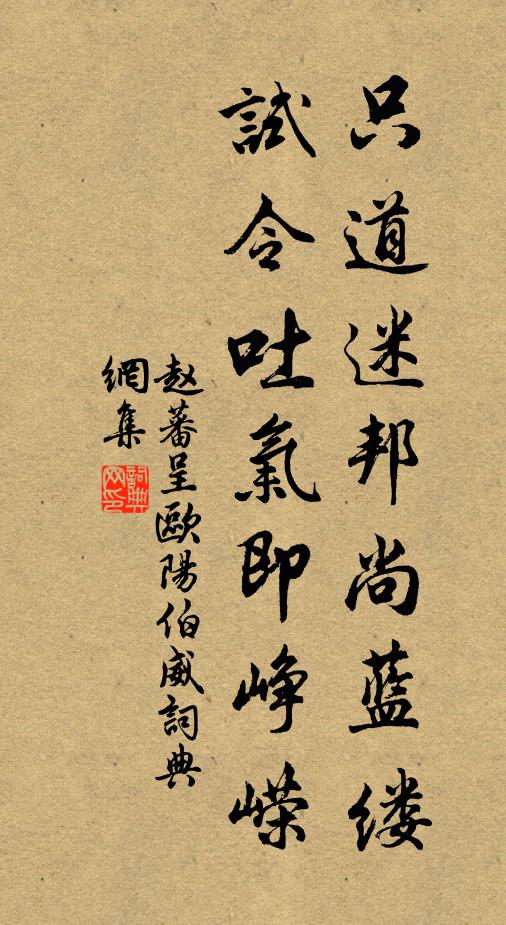 只道迷邦尚蓝缕
試令吐氣即峥嵘
赵蕃呈歐陽伯威詞典
網集
詞典網印